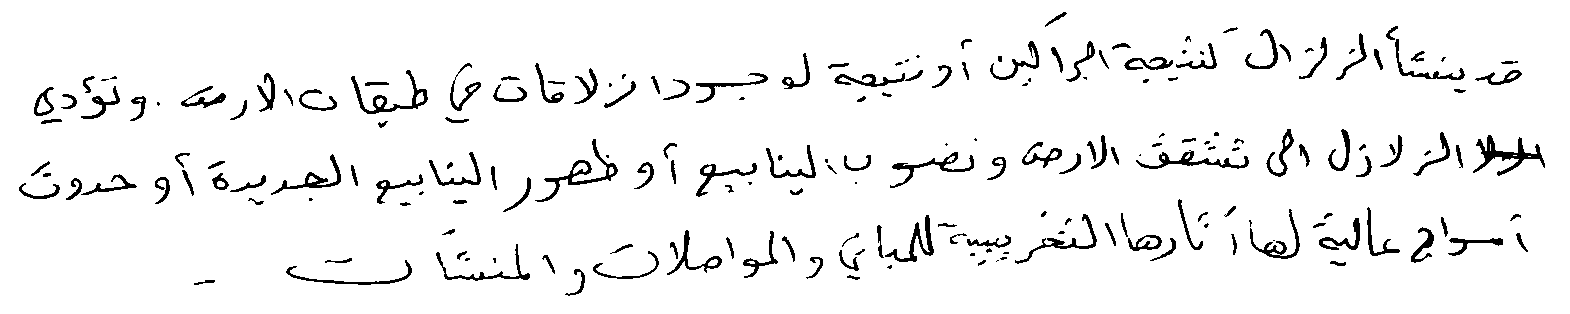 قد ينشأ الزلزال كنتيجة البراكين أو نتيجة لوجود انزلاقات في طبقات الارض. وتؤدي
الزلازل الى تشقق الارض ونضوب الينابيع أو ظهور الينابيع الجديدة أو حدوث
أمواج عالية لها آثارها التخريبية للمباني والمواصلات والمنشآت .